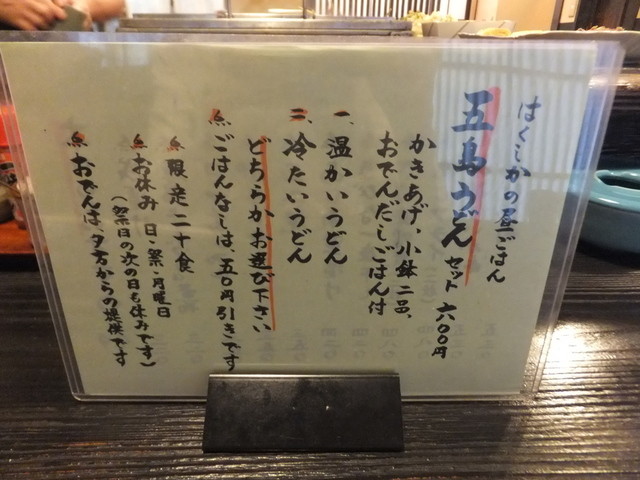 はくしかの昼ごはん
五島うどんセット 六〇〇円
かきあげ、小鉢二品、
おでんだしごはん付
一、温かいうどん
二、冷たいうどん
どちらかお選び下さい
ごはんなしは、五〇円引きです
限定二十食
お休み 日・祭・月曜日
(祭日の次の日も休みです)
おでんは、夕方からの提供です